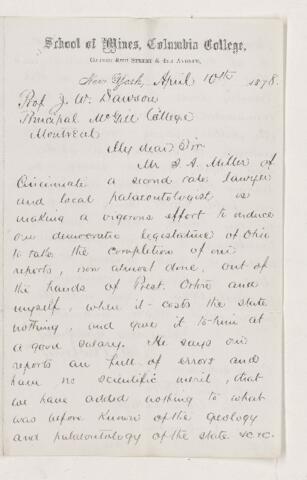 School of Mines, Columbia College,
Corner 49th Street & 4th Avenue,
New York, April 10th 1878.
Prof J. W. Dawson
Principal McGill College
Montreal
My dear Sir
Mr S. A. Miller of
Cincinnati a second rate lawyer
and local palaeontologist is
making a vigorous effort to induce
our democratic legislature of Ohio
to take the completion of our
reports, now almost done, out of
the hands of Prest. Orton and
myself, when it costs the state
nothing, and give it to him at
a good salary. He says our
reports are full of errors and
have no scientific merit, that
we have added nothing to what
was before known of the geology
and palaeontology of the state &c.&c.